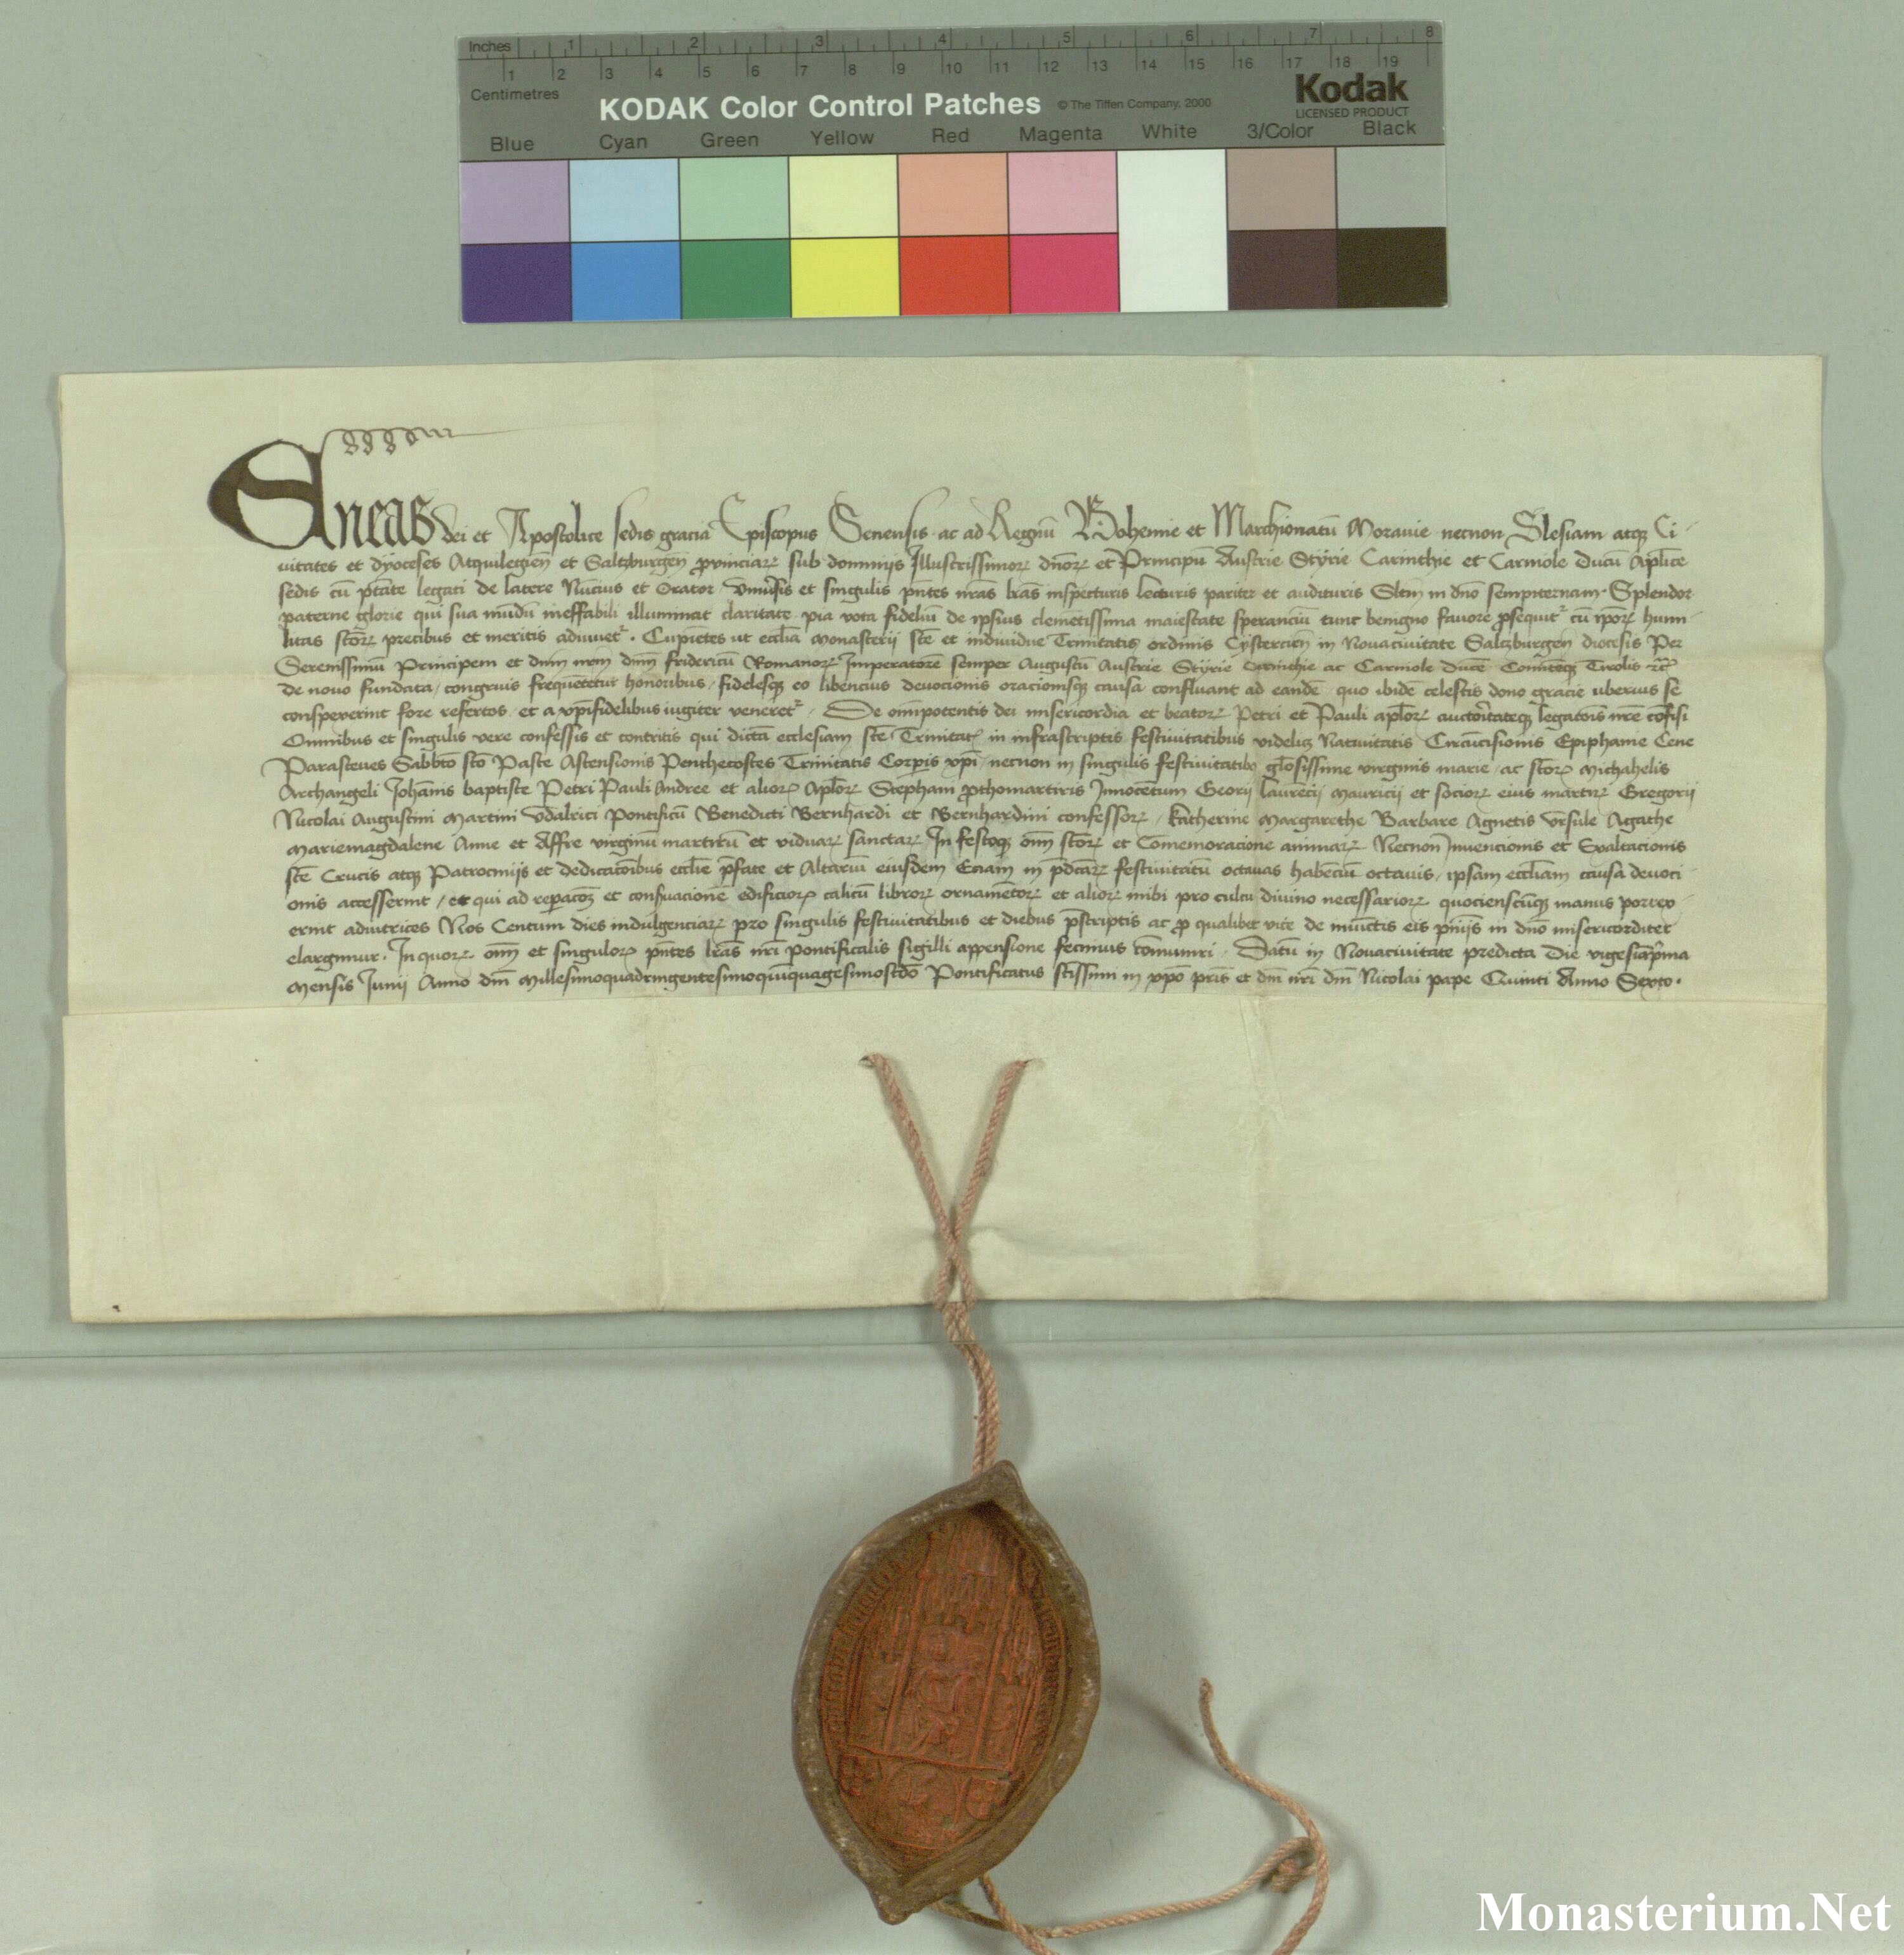 Inches 1 2 3 4 5 6 7 8
1 2 3 4 5 6 7 8 9 10 11 12 13 14 15 16 17 18 19
Centimetres
KODAK Color Control Patches © The Tiffen Company, 2000 Kodak
LICENSED PRODUCT
Blue Cyan Green Yellow Red Magenta White 3/Color Black
Eneas dei et Apostolice sedis gracia Episcopus Senensis ac ad Regnū Bohemie et Marchionatū Moravie necnon Slesiam atqꝫ Ci
vitates et dyoceses Atquilegien̄ et Saltzburgen̄ ꝓvinciaꝝ sub dominijs Illustrissimoꝝ dn̄oꝝ et Principū Austrie Styrie Carinthie et Carniole Ducū Aplīce
sedis cū ptāte legati de latere Nūcius et Orator Univ̄sis et singulis pn̄tes nr̄as lr̄as inspecturis lecturis pariter et audituris Sltm̄ in dn̄o sempiternam. Splendor
paterne glorie qui sua mūdū ineffabili illuminat claritate pia vota fidelū de ipsius clemētissima maiestate speranciū tunc benigno favore ꝓsequit᷑ cū ip̄oꝝ humi
litas sctōꝝ precibus et meritis adiuvet᷑. Cupiētes ut ecclīa monasterij scte et individue Trinitatis ordinis Cystercien̄ in Novacivitate Saltzburgen̄ diocesis Per
Serenissimū Principem et dnm̄ nr̄m dnm̄ fridericū Romanoꝝ Imperatorē semper Augustū Austrie Styrie Carinthie ac Carniole Ducē Comitēqꝫ Tirolis ꝛc̄
de novo fundata, congruis frequētetur honoribus, fidelesqꝫ eo libencius devocionis oracionisqꝫ causa confluant ad eandē quo ibidē celestis dono gracie uberius se
conspexerint fore refertos et a xp̄ifidelibus iugiter veneret᷑, De om̄ipotentis dei misericordia et beatoꝝ Petri et Pauli aplōꝝ auctoritateqꝫ legatōis nr̄e cōfisi
Omnibus et singulis vere confessis et contritis qui dictā ecclesiam scte Trinitat̄ in infrascriptis festivitatibus videlicꝫ Nativitatis Circūcisionis Epiphanie Cene
Parasceves Sabbto sctō Pasce Ascensionis Penthecostes Trinitatis Corp̄is xp̄i, necnon in singulis festivitatibꝰ glōsissime virginis marie, ac sctōꝝ Michahelis
Archangeli Joh̄anis baptiste Petri Pauli Andree et alioꝝ Aplōꝝ Stephani ꝓthomartiris Innocētum Georij laurēcij mauricij et socioꝝ eius martirꝝ Gregorij
Nicolai Augustini Martini Udalrici Pontificū Benedicti Bernhardi et Bernhardini confessoꝝ, Katherine Margarethe Barbare Agnetis Ursule Agathe
Mariemagdalene Anne et Affre virginū martirū et viduaꝝ sanctaꝝ In festoqꝫ om̄ sctōꝝ et Comemoracione animaꝝ Necnon Invencionis et Exaltacionis
scte Crucis atqꝫ Patrocinijs et dedicatōibus ecclīe p̄fate et Altariū eiusdem Eciam in p̄dctāꝝ festivitatū octavas habēciū octavis, ipsam ecclīam causa devoci
onis accesserint, et qui ad rep̄acōꝫ et cons̄vacionē edificioꝝ calicū libroꝝ ornamētoꝝ et alioꝝ inibi pro cultu divino necessarioꝝ quociescūqꝫ manus porrex
erint adiutrices Nos Centum dies indulgenciaꝝ pro singulis festivitatibus et diebus p̄scriptis ac ꝓ qualibet vice de iniūctis eis pn̄ijs in dn̄o misericorditer
elargimur. In quoꝝ om̄ et singuloꝝ pn̄tes lr̄as nr̄i pontificalis sigilli appensione fecimus cōmuniri. Datū in Novacivitate predicta Die vigesiāprīma
mensis Junij Anno dnī Millesimoquadringentesimoquīquagesimoscdō Pontificatus sctissimi in xp̄o pr̄is et dnī nr̄i dnī Nicolai pape Quinti Anno Sexto.
Monasterium.Net